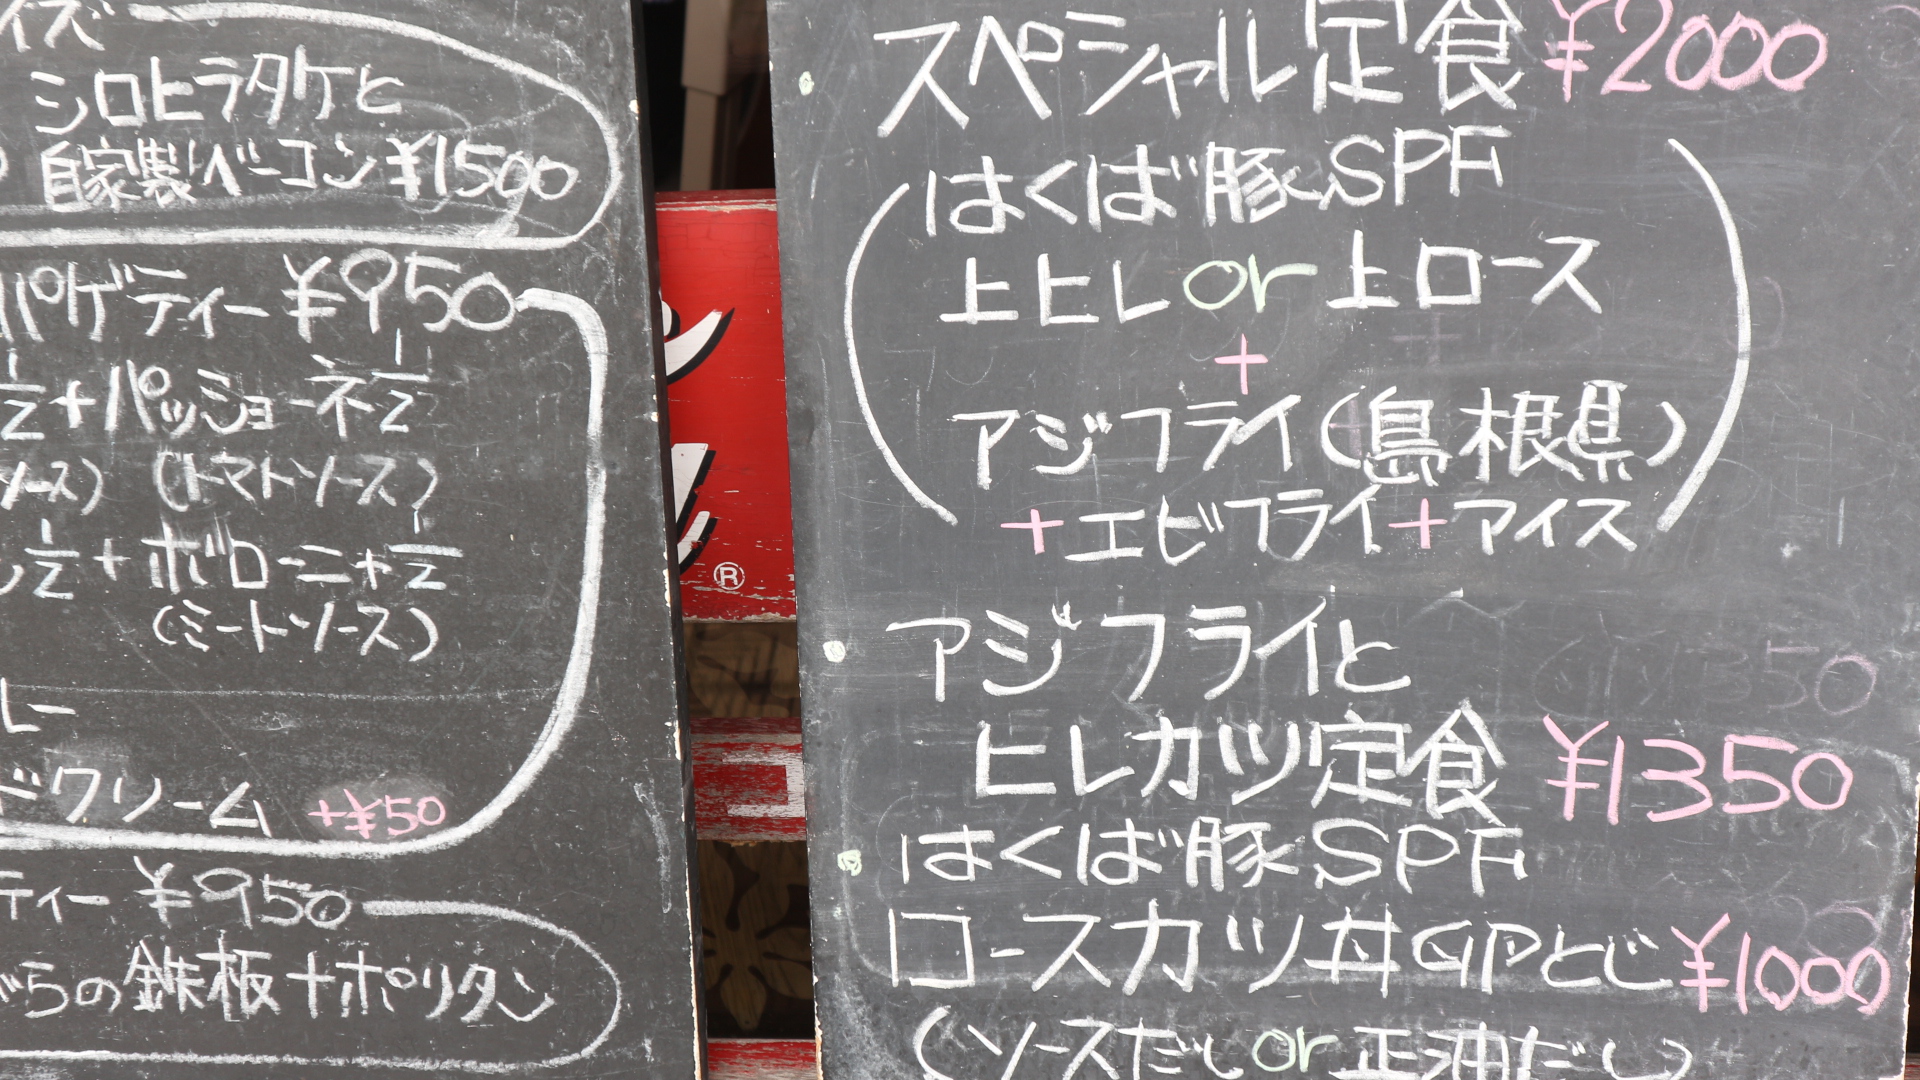 イズ
シロヒラタケと
自家製ベーコン ¥1500
パゲティー ¥950
1/2+パッショーネ1/2
ソース) (トマトソース)
1/2+ボローニャ1/2
(ミートソース)
レー
ドクリーム +¥50
ティー ¥950
ぐらの鉄板ナポリタン
®
コ
スペシャル定食 ¥2000
はくば豚SPF
上ヒレor上ロース
+
アジフライ(島根県)
+エビフライ+アイス
アジフライと
ヒレカツ定食 ¥1350
はくば豚SPF
ロースカツ丼 GPとじ ¥1000
(ソースだし or 正油だし)